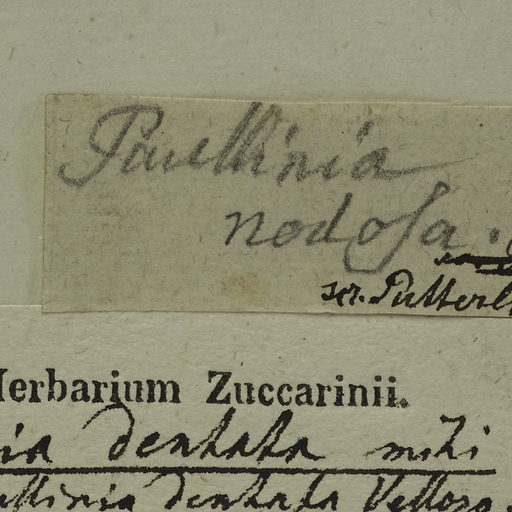 Paullinia
nodosa.
scr. Putterl
Herbarium Zuccarinii.
ia dentata mihi
ullinia dentata Velloso